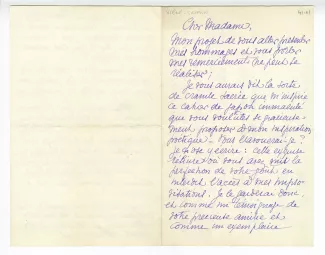 Chère Madame,
Mon projet de vous aller présenter
mes hommages et vous porter
mes remerciements n'a pu se
réaliser;
Je vous aurais dit la sorte
de crainte sacrée que m'inspire
ce cahier de Japon immaculé
que vous voulûtes si gracieuse-
ment proposer à mon inspiration
poétique. Vous l'avouerai-je?
Je n'ose y écrire: cette
reliure où vous avez mis la
perfection de votre goût en
interdit l'accès à mes impro-
visations. Je le garderai donc
et comme un témoignage de
votre précieuse amitié et
comme un exemplaire